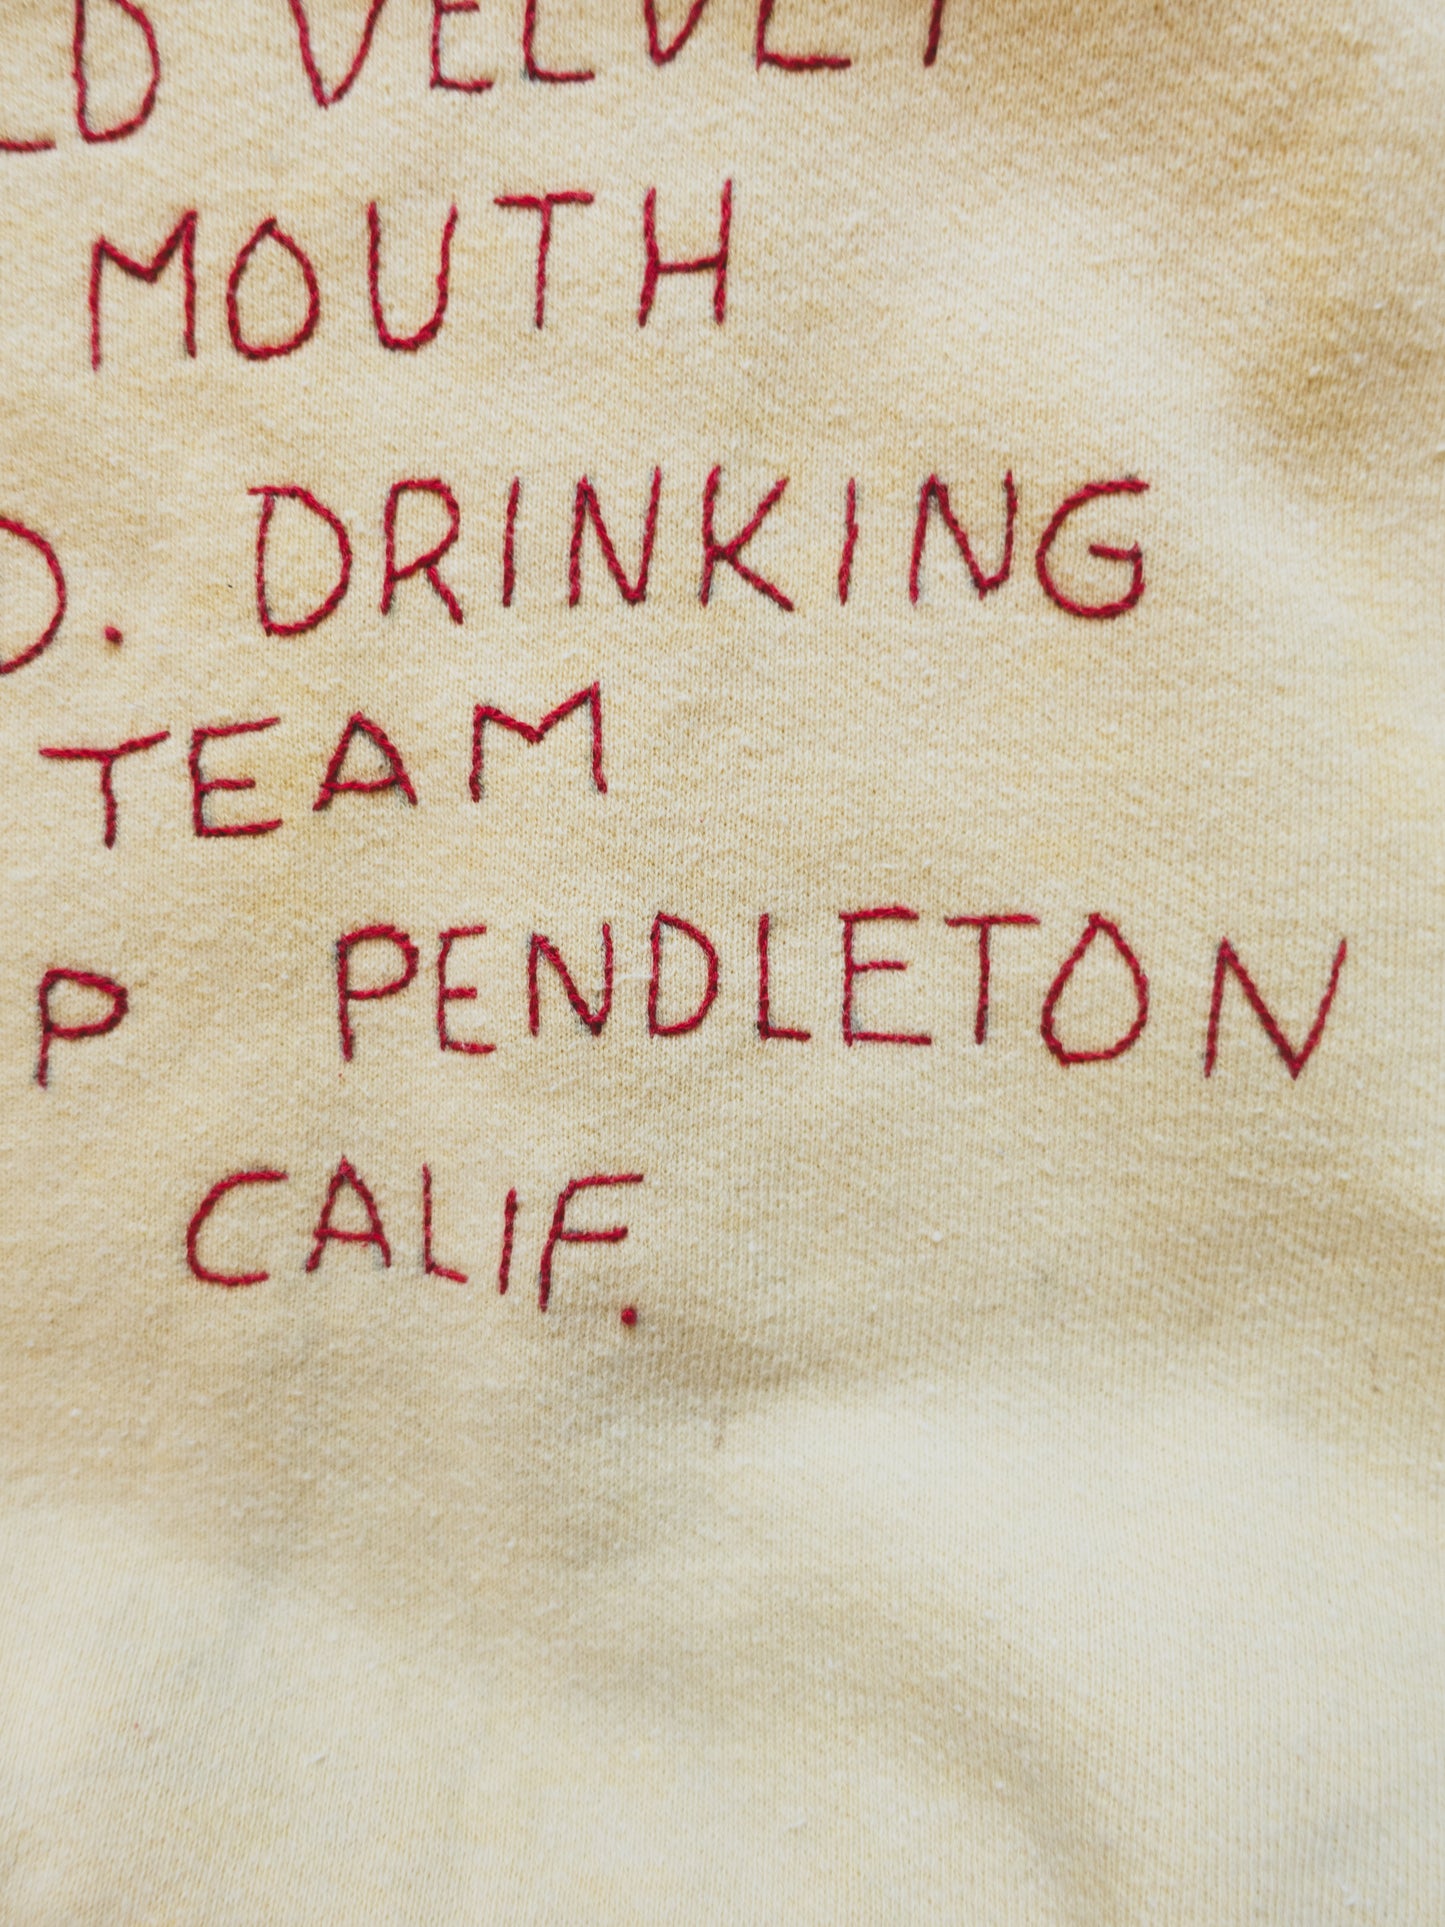 LD VELVET
MOUTH
D. DRINKING
TEAM
P PENDLETON
CALIF.